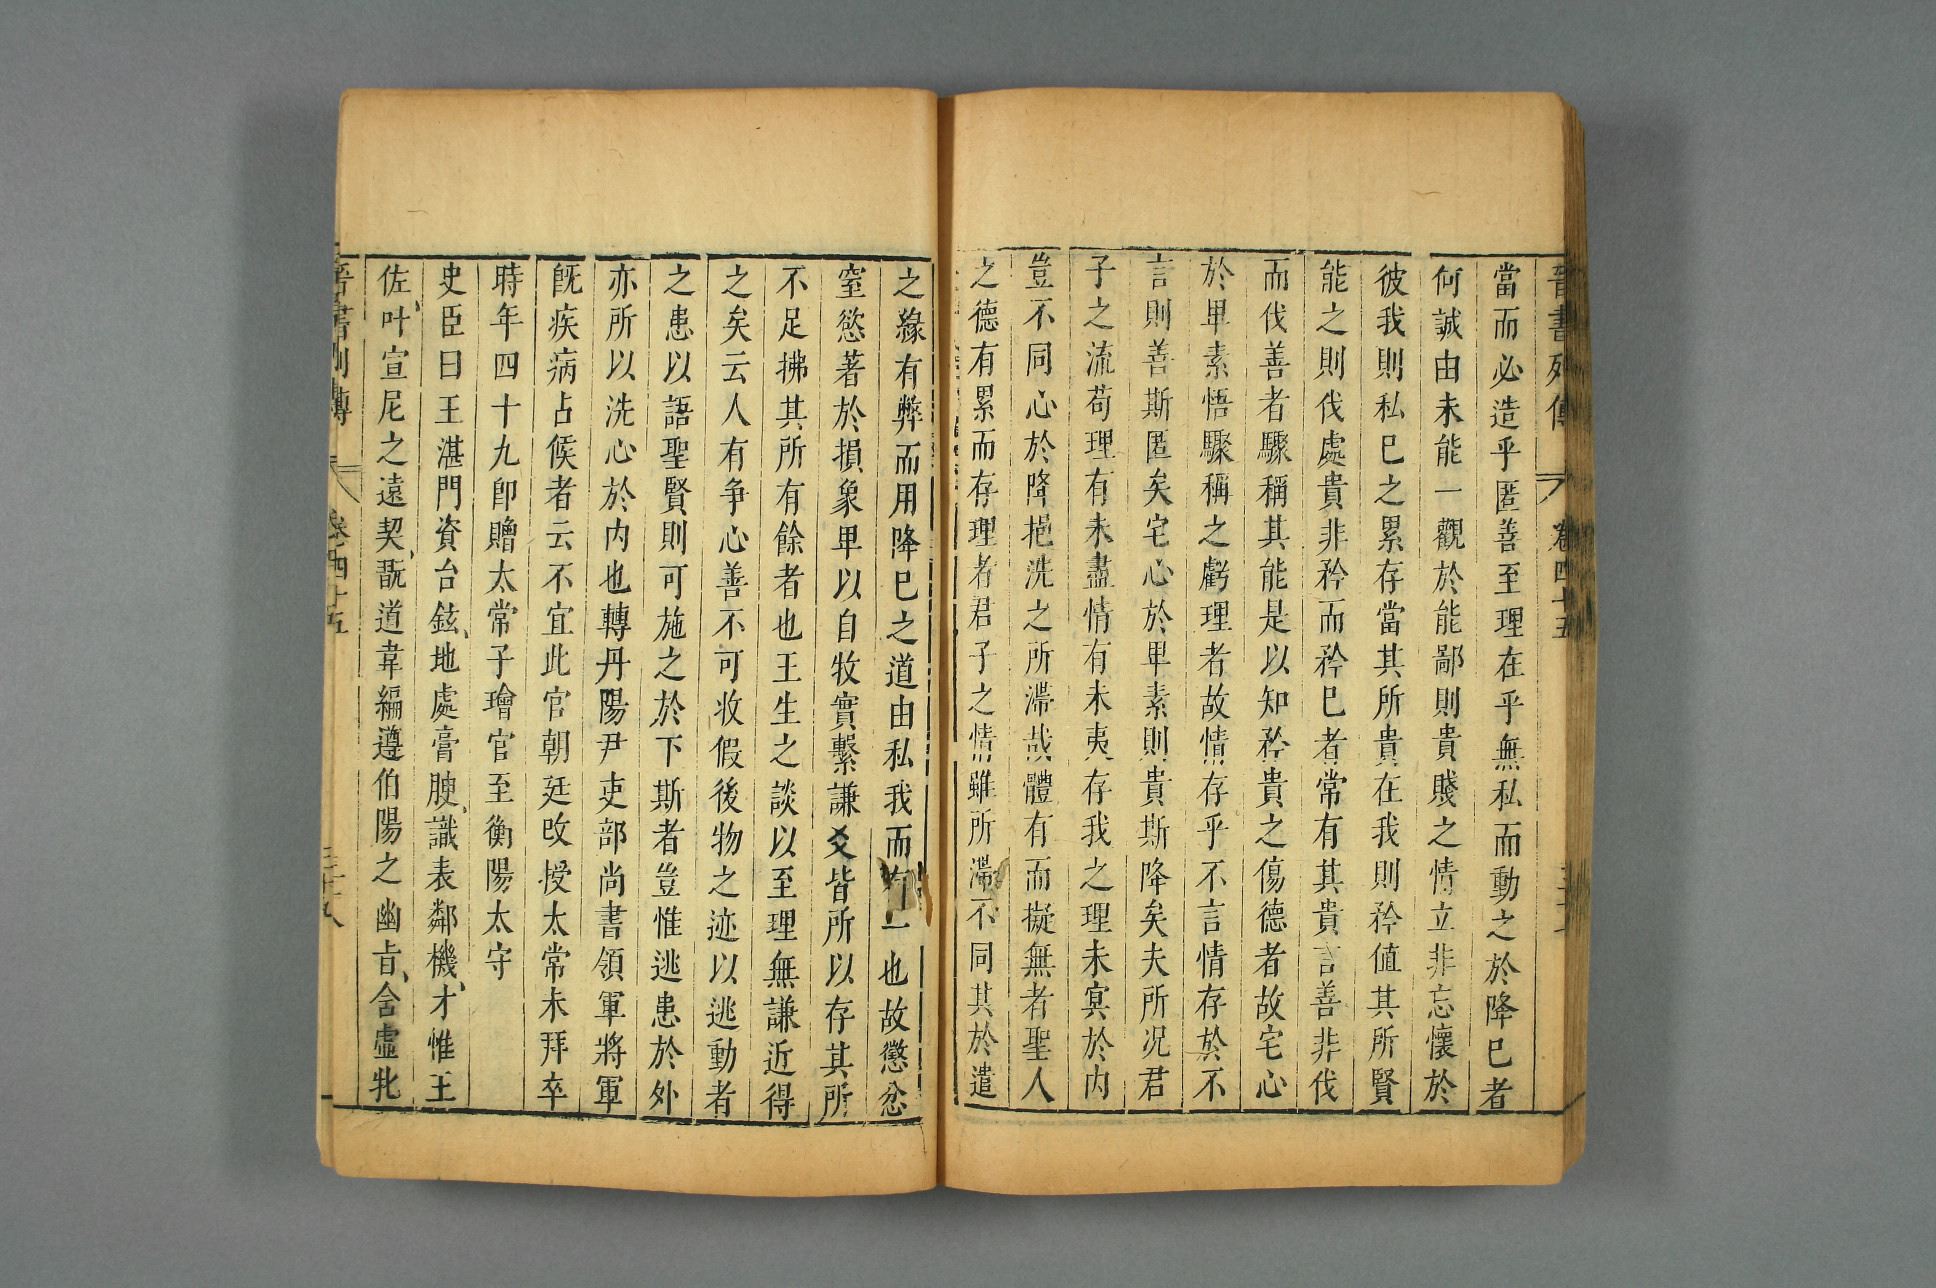 晉書列傳 卷四十五
當而必造乎匿善至理在乎無私而動之於降已者
何誠由未能一觀於能鄙則貴賤之情立非忘懷於
彼我則私已之累存當其所貴在我則矜值其所賢
能之則伐處貴非矜而矜已者常有其貴言善非伐
而伐善者驟稱其能是以知矜貴之傷德者故宅心
於卑素悟驟稱之虧理者故情存乎不言情存於不
言則善斯匿矣宅心於卑素則貴斯降矣夫所况君
子之流苟理有未盡情有未夷存我之理未冥於内
豈不同心於降挹洗之所滯哉體有而擬無者聖人
之德有累而存理者君子之情雖所滯不同其於遣
之緣有弊而用降已之道由私我而有一也故懲忿
窒慾著於損象卑以自牧實繫謙爻皆所以存其所
不足拂其所有餘者也王生之談以至理無謙近得
之矣云人有争心善不可收假後物之迹以逃動者
之患以語聖賢則可施之於下斯者豈惟逃患於外
亦所以洗心於内也轉丹陽尹吏部尚書領軍將軍
旣疾病占候者云不宜此官朝廷改授太常未拜卒
時年四十九卽贈太常子璯官至衡陽太守
史臣曰王湛門資台鉉、地處膏腴、識表鄰機、才惟王
佐、叶宣尼之遠契、翫道韋編遵伯陽之幽旨、含虛牝
晉書列傳 卷四十五 三十八